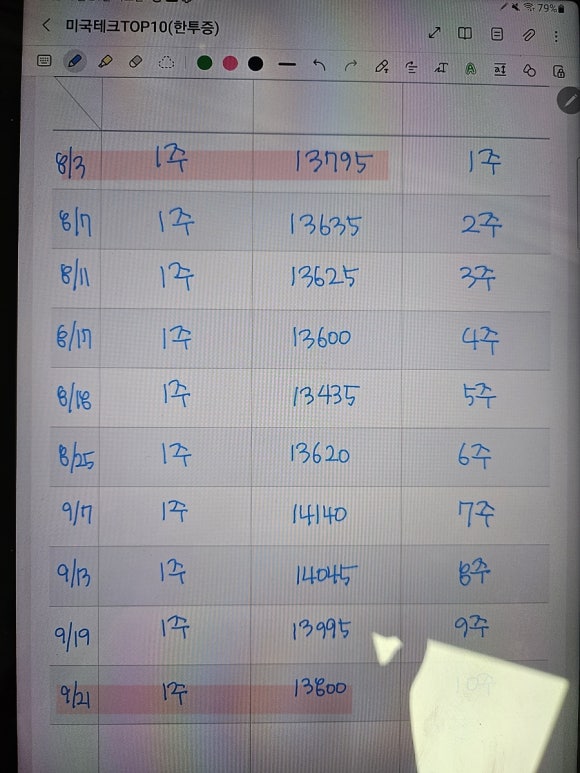 79%
미국테크TOP10(한투증)
8/3 1주 13795 1주
8/7 1주 13635 2주
8/11 1주 13625 3주
8/17 1주 13600 4주
8/18 1주 13435 5주
8/25 1주 13620 6주
9/7 1주 14140 7주
9/13 1주 14045 8주
9/19 1주 13995 9주
9/21 1주 13800 10주